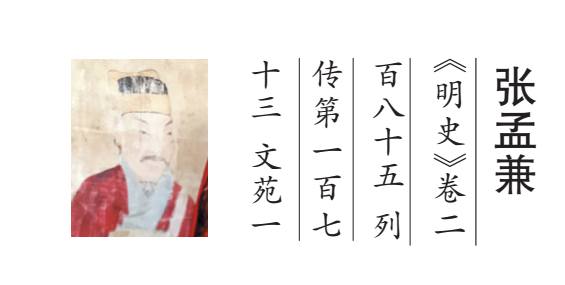 张孟兼
《明史》卷二
百八十五 列
传第一百七
十三 文苑一